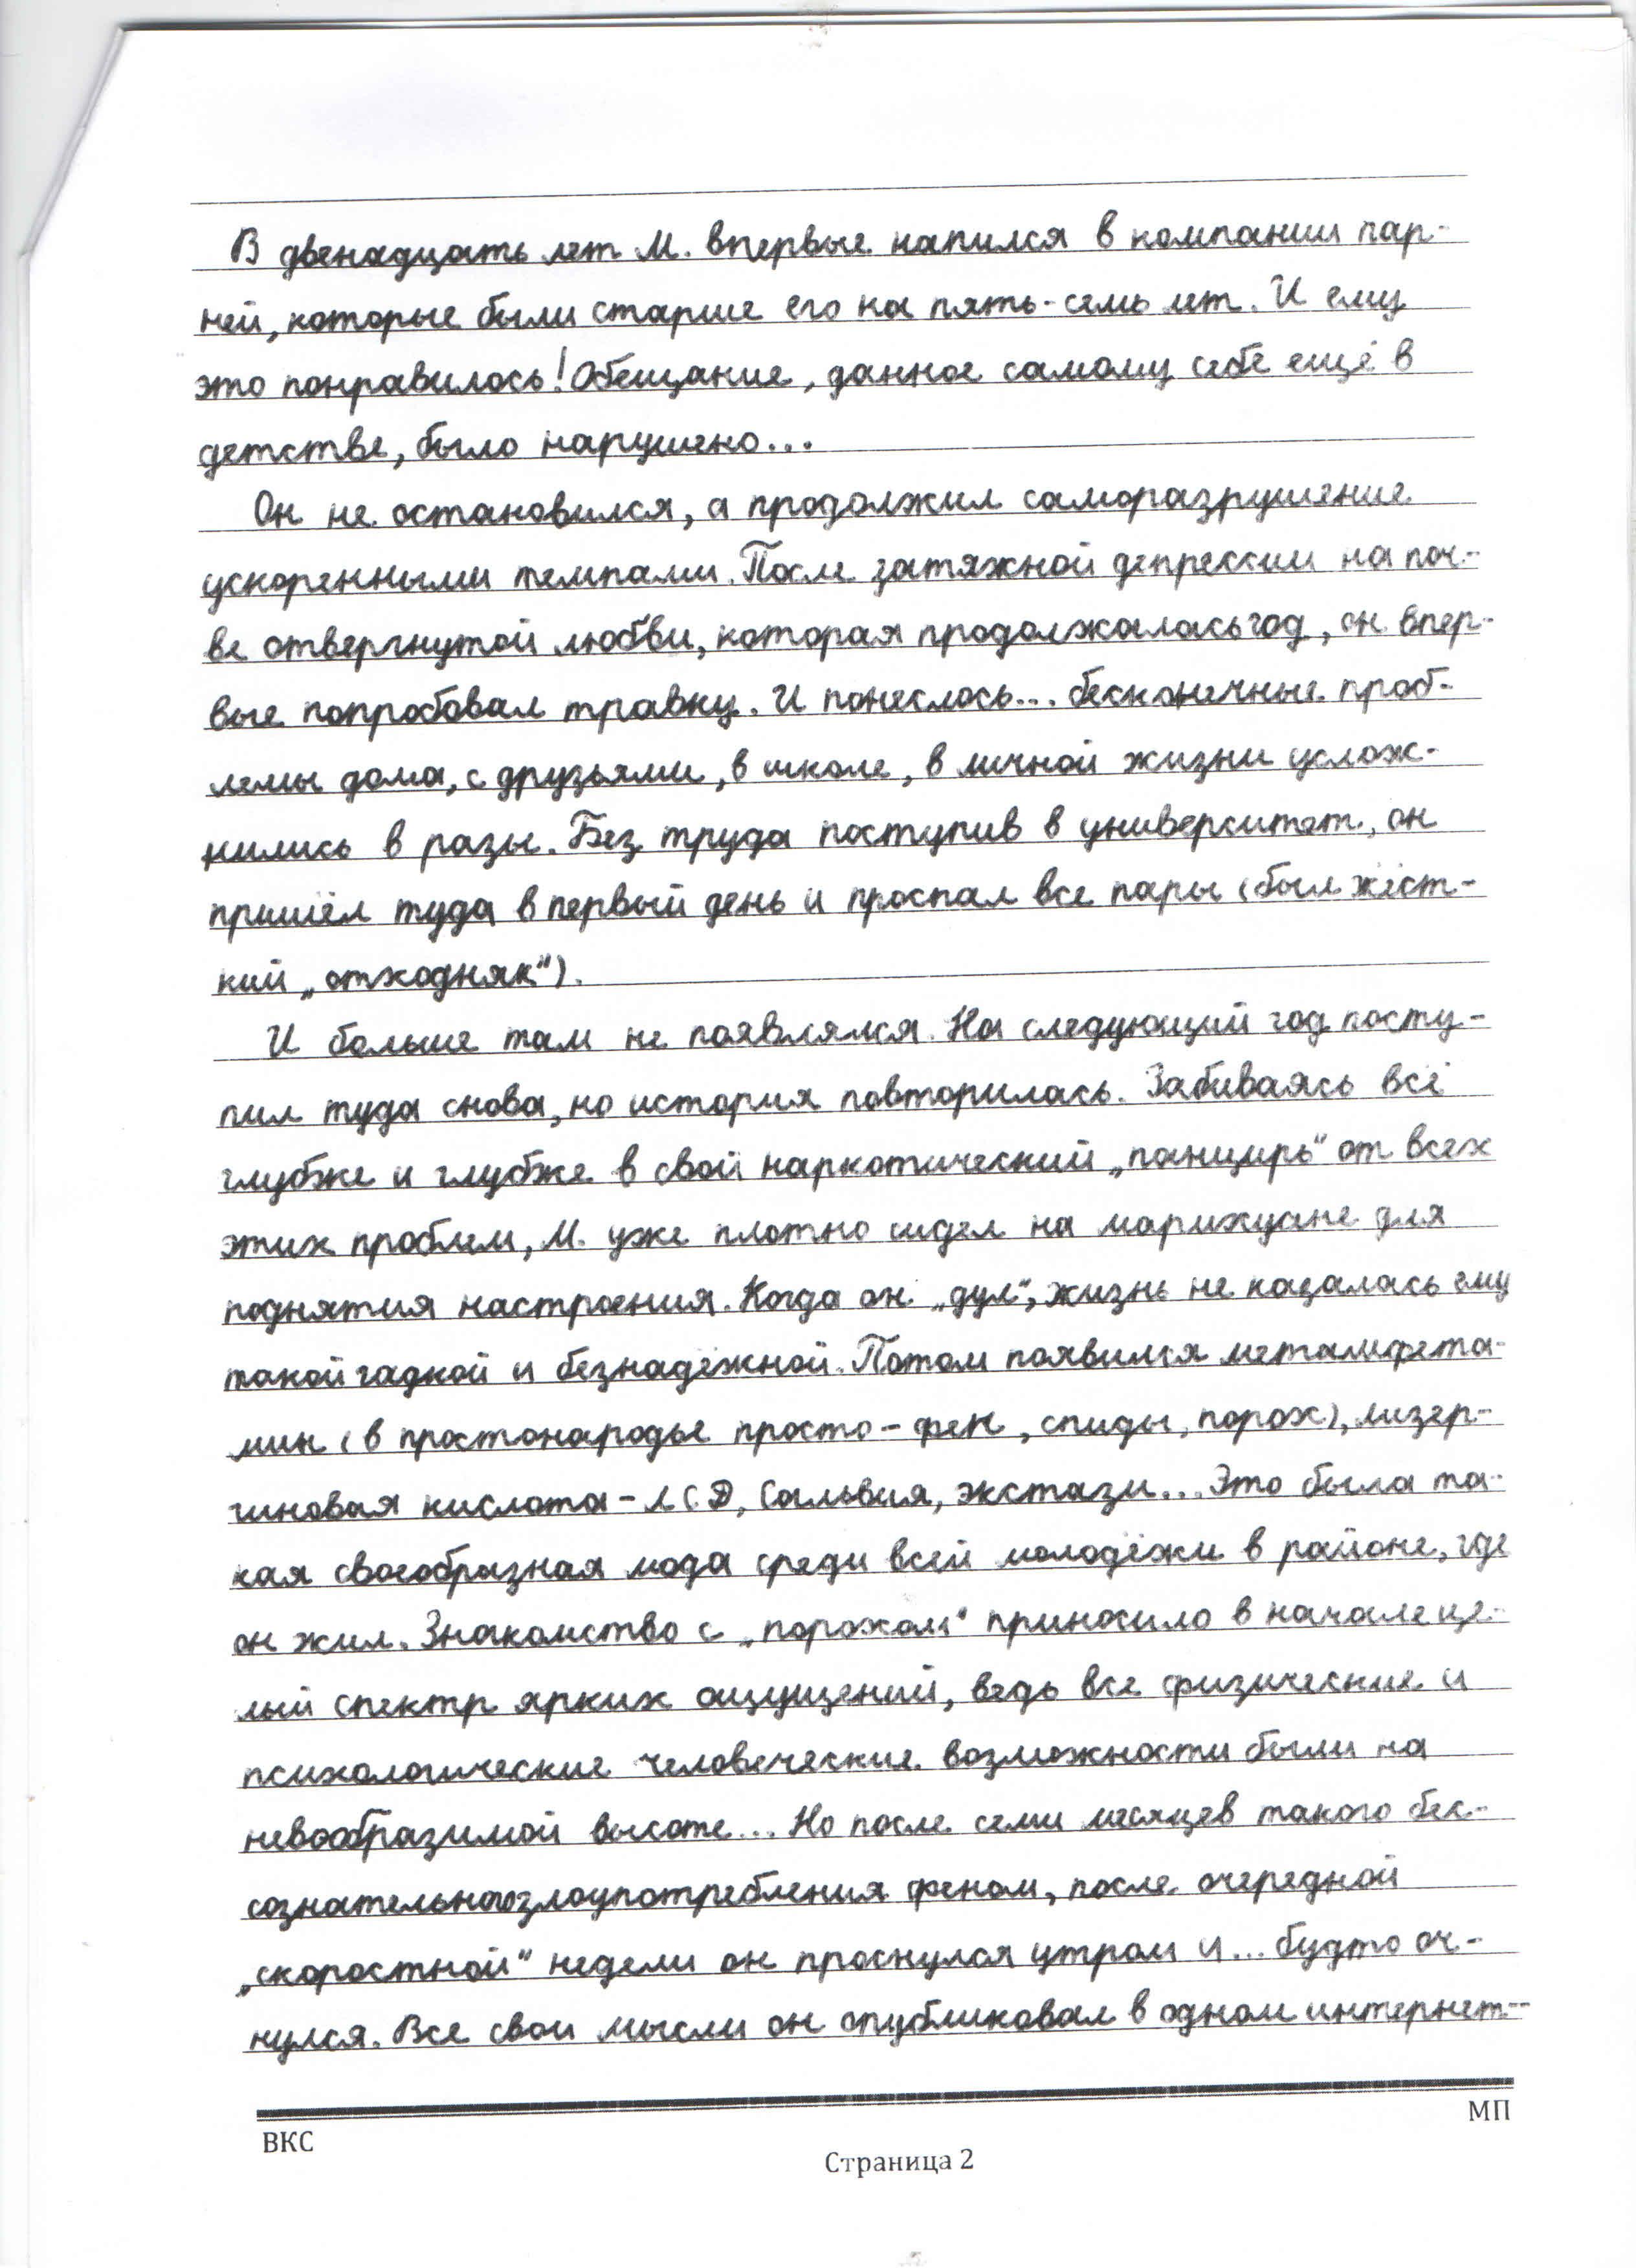 В двенадцать лет М. впервые напился в компании пар-
ней, которые были старше его на пять-семь лет. И ему
это понравилось! Обещание, данное самому себе ещё в
детстве, было нарушено...
Он не остановился, а продолжил саморазрушение
ускоренными темпами. После затяжной депрессии на поч-
ве отвергнутой любви, которая продолжалась год, он впер-
вые попробовал травку. И понеслось... бесконечные проб-
лемы дома, с друзьями, в школе, в личной жизни услож-
нились в разы. Без труда поступив в университет, он
пришёл туда в первый день и проспал все пары (был жёст-
кий „отходняк").
И больше там не появлялся. На следующий год посту-
пил туда снова, но история повторилась. Забиваясь всё
глубже и глубже в свой наркотический „панцирь" от всех
этих проблем, М. уже плотно сидел на марихуане для
поднятия настроения. Когда он „дул", жизнь не казалась ему
такой гадкой и безнадёжной. Потом появился метамфета-
мин (в простонародье просто - фен, спиды, порох), лизер-
гиновая кислота - ЛСД, Сальвия, экстази... Это была та-
кая своеобразная мода среди всей молодёжи в районе, где
он жил. Знакомство с „порохом" приносило в начале це-
лый спектр ярких ощущений, ведь все физические и
психологические человеческие возможности были на
невообразимой высоте... Но после семи месяцев такого бес-
сознательного злоупотребления феном, после очередной
„скоростной" недели он проснулся утром и... будто оч-
нулся. Все свои мысли он опубликовал в одном интернет-
ВКС
МП
Страница 2